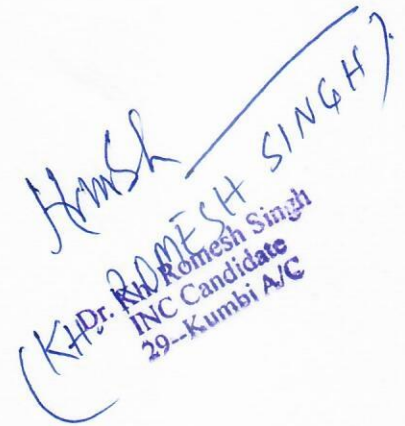 (KH. ROMESH SINGH).
Dr. Kh. Romesh Singh
INC Candidate
29--Kumbi A/C